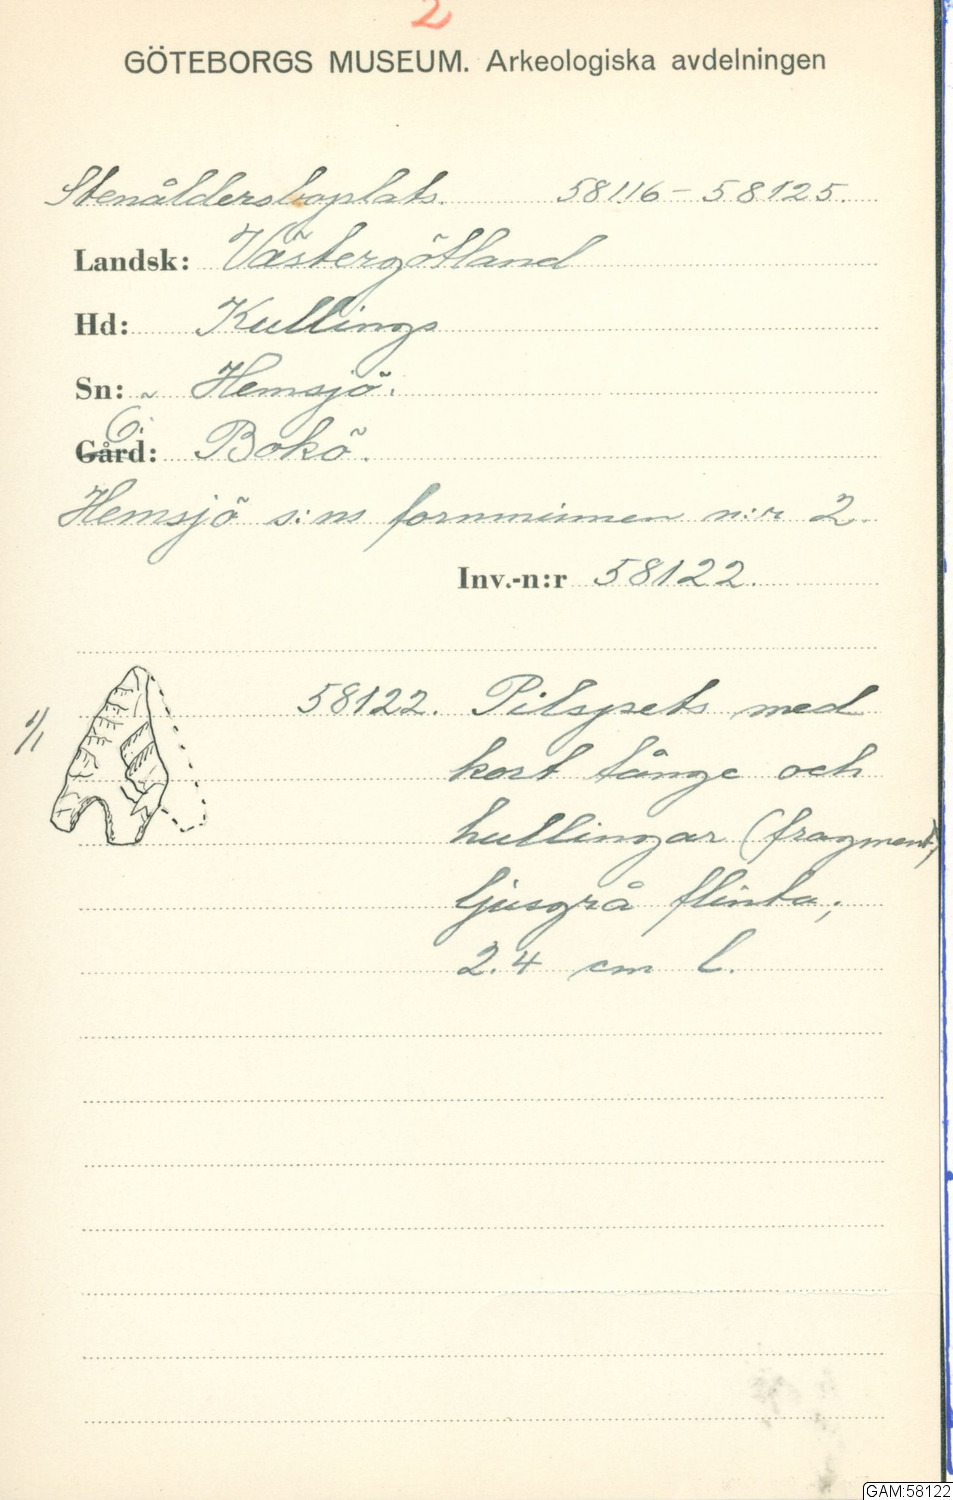 2
GÖTEBORGS MUSEUM. Arkeologiska avdelningen
Stenåldersboplats. 58116-58125.
Landsk: Västergötland
Hd: Kullings
Sn: Hemsjö.
Gård: Ö. Bokö.
Hemsjö s:ns fornminnen n:r 2.
Inv.-n:r 58122.
1/1
58122. Pilspets med
kort tånge och
hullingar (fragment)
ljusgrå flinta;
2.4 cm l.
GAM:58122